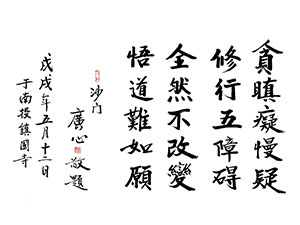 貪瞋癡慢疑
修行五障碍
全然不改變
悟道難如願
沙门
廣心敬題
戊戌年五月十三日
于南投鎮國寺